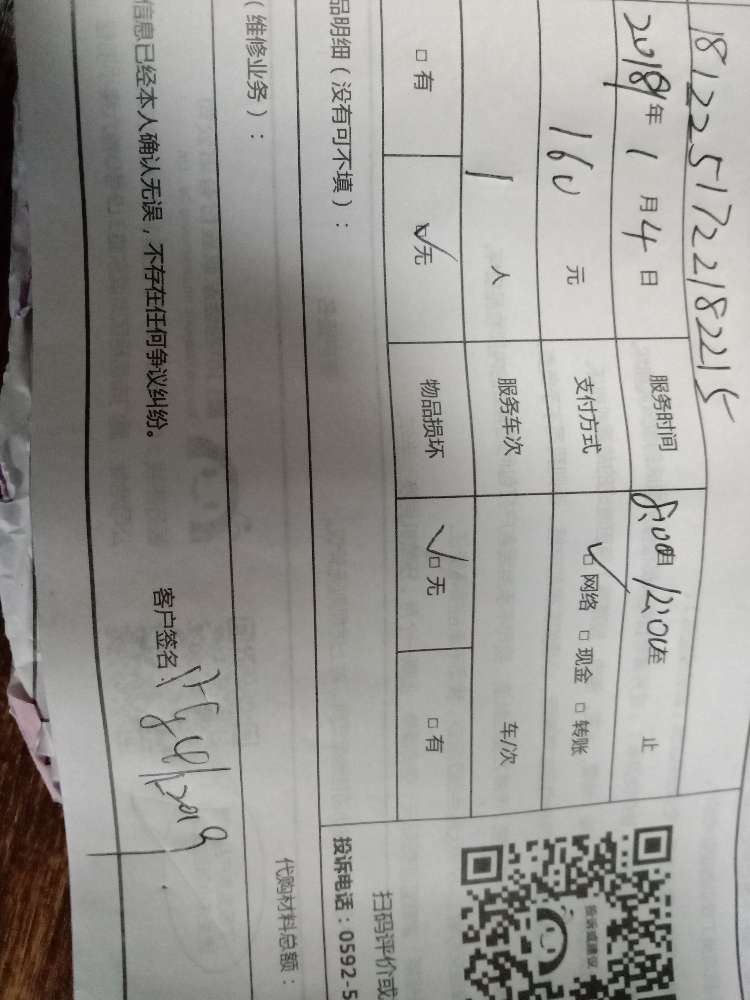 1812251722182215
2019年 1 月 4 日 服务时间 8:00 12:00 至 止
160 元 支付方式 □ 网络 □ 现金 □ 转账
1 人 服务车次 车/次
□ 有 □ 无 物品损坏 □ 无 □ 有
品明细（没有可不填）：
（维修业务）：
代购材料总额：
信息已经本人确认无误，不存在任何争议纠纷。
客户签名：
4/1/2019
投诉或建议
扫码评价或
投诉电话：0592-5